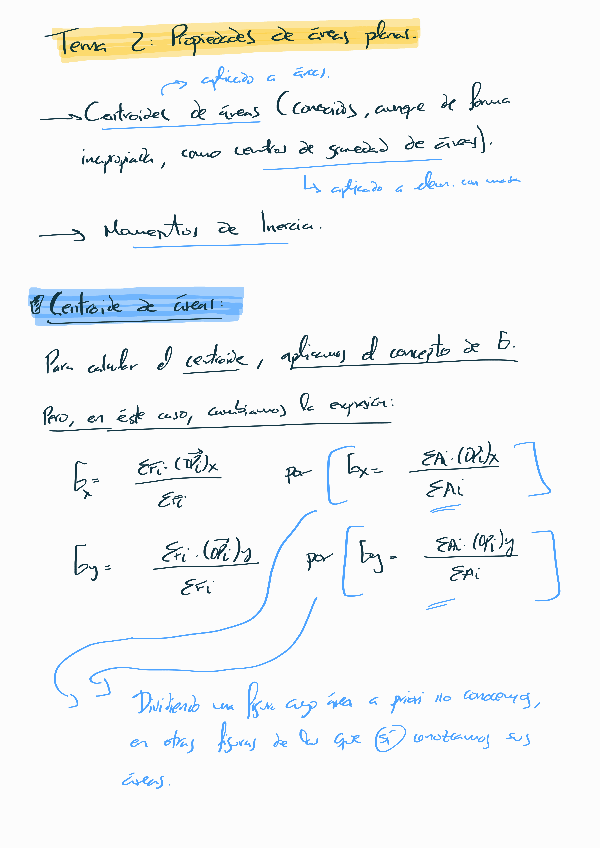 Tema 2: Propiedades de áreas planas.
→ aplicado a áreas.
→ Centroides de áreas (conocidos, aunque de forma
inapropiada, como centros de gravedad de áreas).
↳ aplicado a elem. con masa
→ Momentos de Inercia.
Centroide de áreas:
Para calcular el centroide, aplicamos el concepto de G.
Pero, en éste caso, cambiamos la expresión:
Gx = ΣFi·(OPi)x / ΣFi por [Gx = ΣAi·(OPi)x / ΣAi]
Gy = ΣFi·(OPi)y / ΣFi por [Gy = ΣAi·(OPi)y / ΣAi]
Dividiendo una figura cuyo área a priori no conocemos,
en otras figuras de las que sí conozcamos sus
áreas.